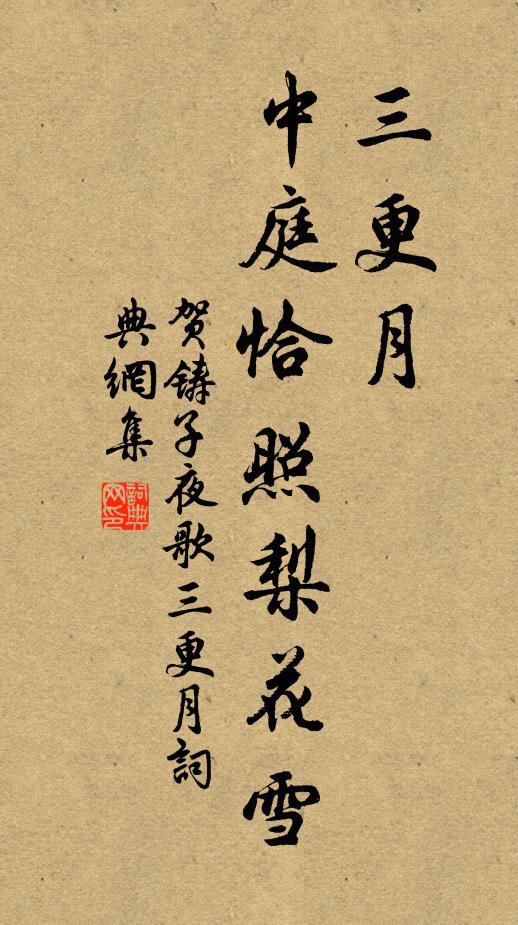 三更月
中庭恰照梨花雪
贺鑄子夜歌三更月詞
典網集
詞典
网印